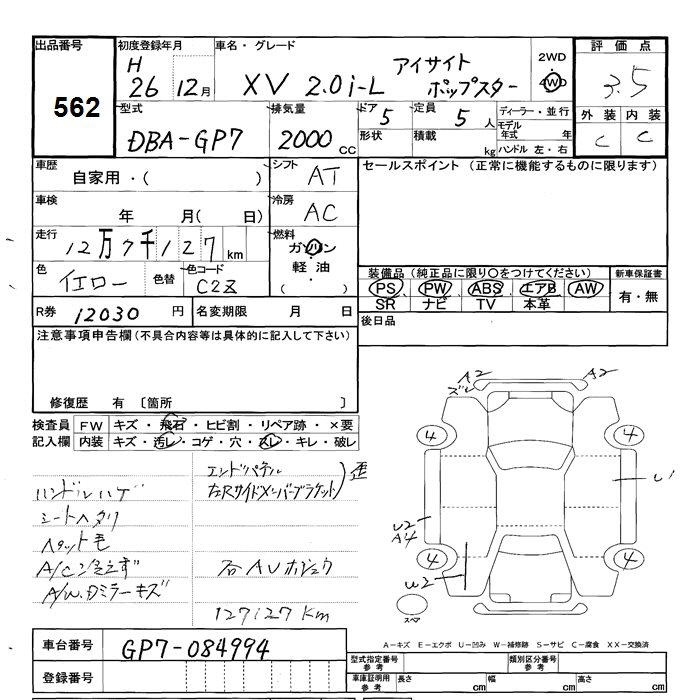 出品番号
562
初度登録年月
H 26 12月
車名・グレード
XV 2.0i-L アイサイト
ポップスター
2WD
4WD
評価点
3.5
外装 内装
C C
型式
DBA-GP7
排気量
2000 CC
ドア 5
形状
定員 5 人
積載 kg
ディーラー・並行
モデル年式 年
ハンドル 左・右
車歴
自家用・( )
シフト
AT
車検
年 月( 日)
冷房
AC
走行
12万7千127 km
燃料
ガソリン
軽油
( )
色
イエロー
色替
色コード
C2Z
R券 12030 円
名変期限 月 日
セールスポイント (正常に機能するものに限ります)
装備品(純正品に限り○をつけてください)
PS PW ABS エアB AW
SR ナビ TV 本革
新車保証書
有・無
後日品
注意事項申告欄(不具合内容等は具体的に記入して下さい)
修復歴 有 〔箇所 〕
検査員
記入欄
FW キズ・飛石・ヒビ割・リペア跡・×要
内装 キズ・汚レ・コゲ・穴・スレ・キレ・破レ
ハンドルハゲ
シートヘタリ
ペット毛
A/C
A/W.Dミラーキズ
エンドパネル
左Rサイドメンバーブラケット)歪
127127 km
A2
ズレ
A2
4
4
4
4
U2
A4
U2
スペア
A-キズ E-エクボ U-凹み W-補修跡 S-サビ C-腐食 XX-交換済
車台番号
GP7-084994
登録番号
型式指定番号
参考
類別区分番号
参考
車庫証明用
参考
長さ cm 幅 cm 高さ cm